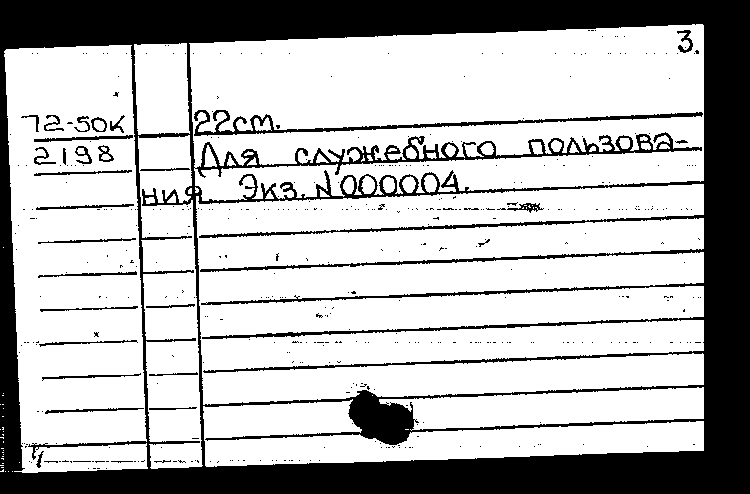 3.
72-50к 22см.
2198 Для служебного пользова-
ния. Экз. №000004.